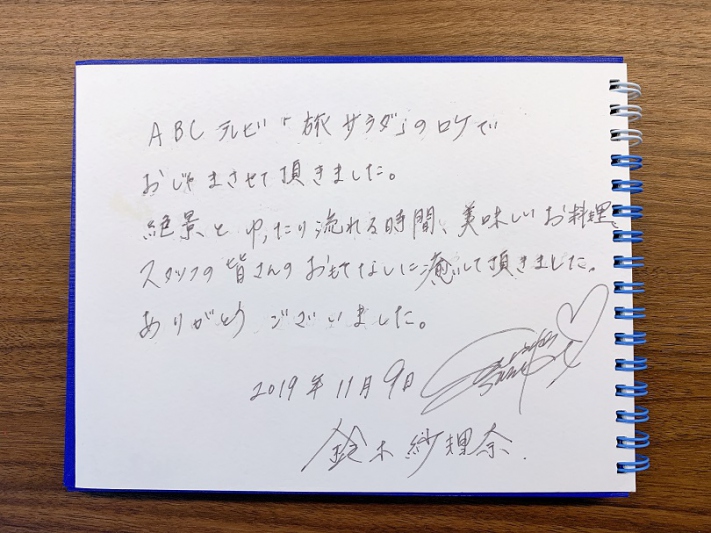 ABCテレビ「旅サラダ」のロケで
おじゃまさせて頂きました。
絶景とゆったり流れる時間、美味しいお料理、
スタッフの皆さんのおもてなしに癒して頂きました。
ありがとうございました。
2019年11月9日
鈴木紗理奈.